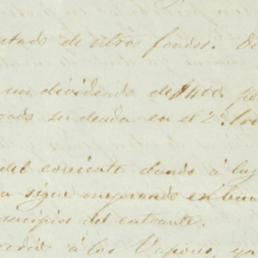 de otros fondos.
un dividendo de $400. po
su deuda en el 2º
del corriente dando á lug
sigue mejorando en
principios del entrante.
á los Vapores, ya